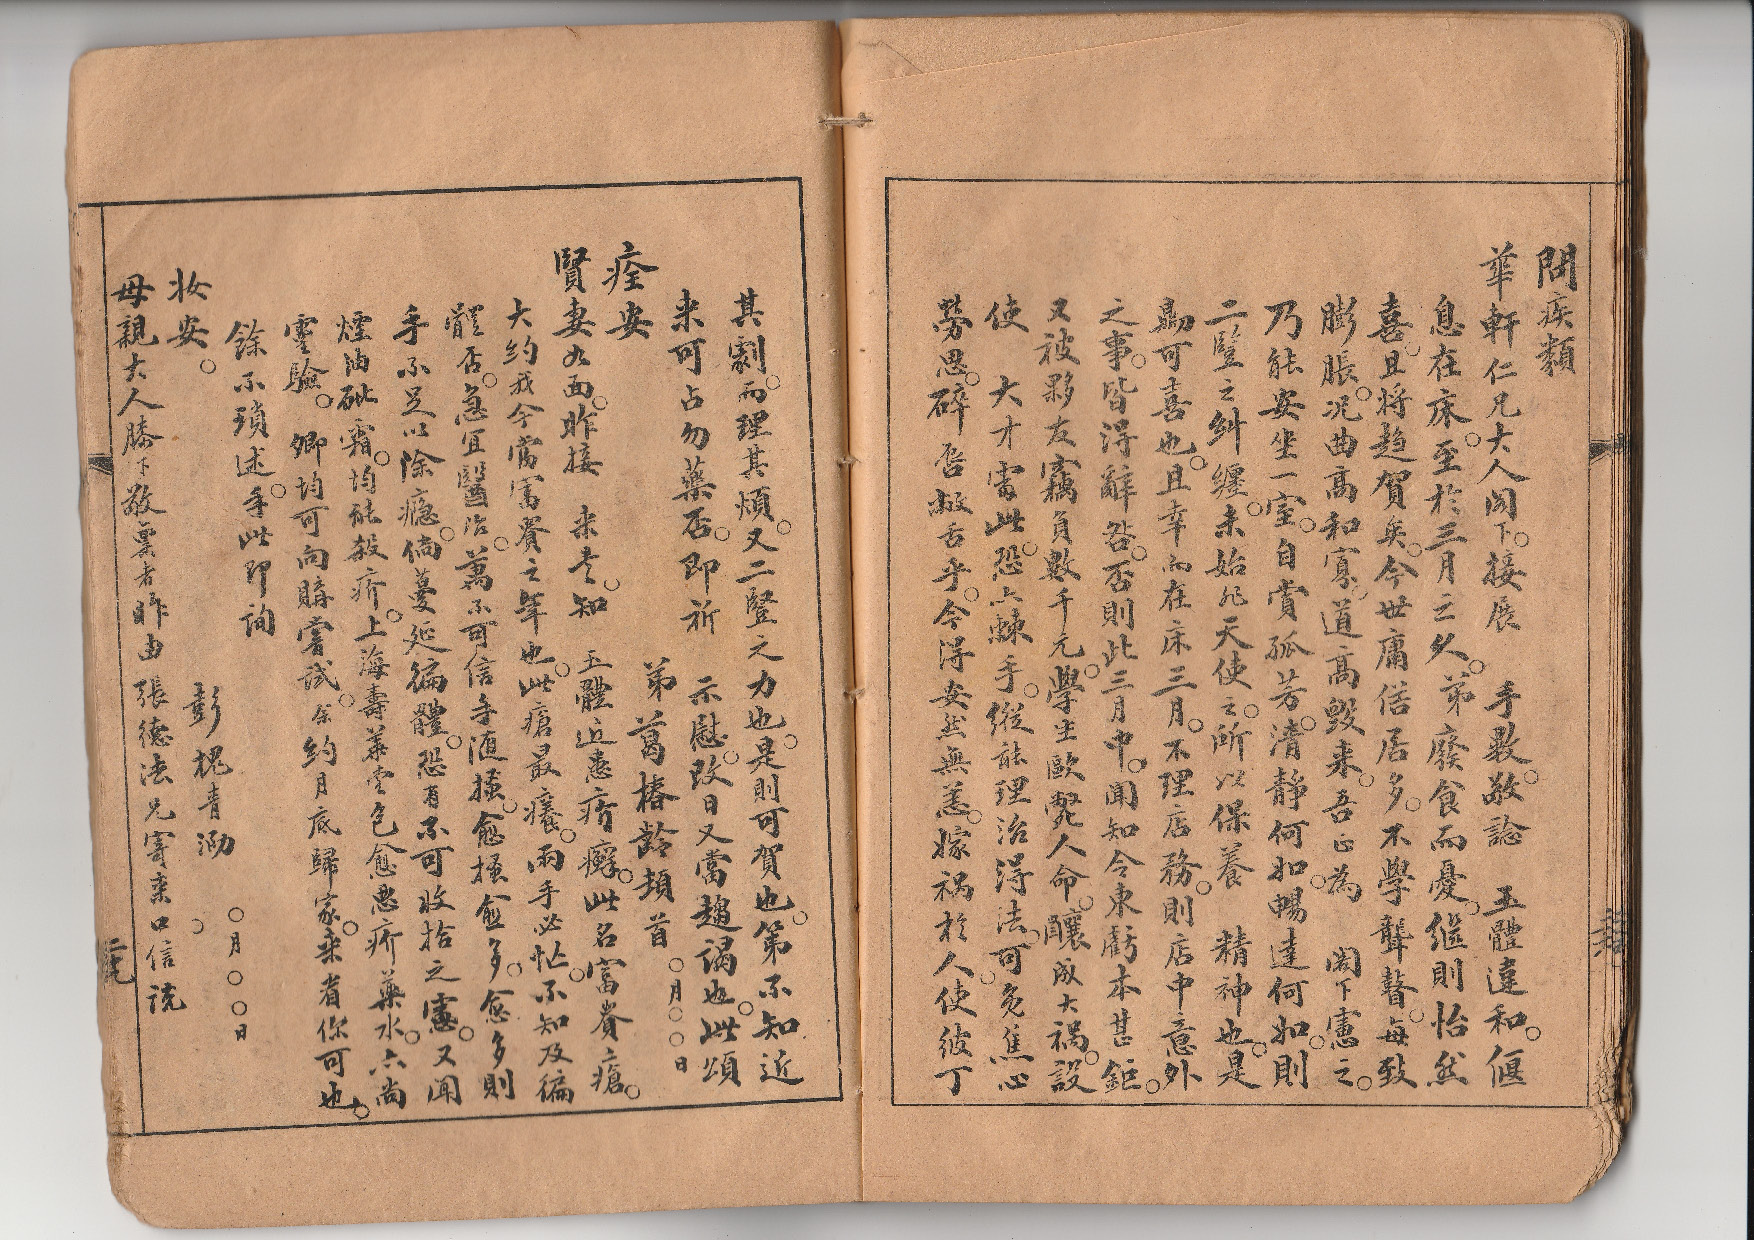 問疾類
華軒仁兄大人閣下。接展　手教。敬諗　玉體違和。偃
息在床。至於三月之久。弟廢食而憂。繼則怡然
喜。且將趨賀矣。今世庸俗居多。不學聾瞽。每致
膨脹。况曲高和寡。道高毁来。吾正為　閣下憲之。
乃能安坐一室。自賞孤芳。清静何如。暢達何如。則
二豎之糾纏。未始非天使之所以保養　精神也。是
勗可喜也。且幸而在床三月。不理店務。則店中意外
之事。皆得辭咎。否則此三月中。聞知今東虧本甚鉅。
又被夥友竊負數千元。學生歐斃人命。釀成大禍。設
使　大才當此。恐亦棘手。縱能理治得法。可免焦心
勞思。碎唇敝舌乎。今得安然無恙。嫁祸於人。使彼丁
其劇。而理其煩。又二豎之力也。是則可賀也。第不知近
来可占勿藥否。即祈　示慰。改日又當趨謁也。此頌
痊安　弟葛椿齡頓首　○月○○日
賢妻如面。昨接　来书。知　玉體近患疥癬。此名富貴瘡。
大约我今當富貴之年也。此瘡最癢。兩手必忙。不知及徧
體否。急宜醫治。萬不可信手隨搔。愈搔愈多。愈多則
手不足以除癮。倘蔓延徧體。恐有不可收拾之憲。又聞
煙油砒霜。均能殺疥。上海壽萊堂包愈患疥藥水。亦尚
靈驗。卿均可向購嘗試。余约月底歸家。来省你可也。
餘不瑣述。手此即詢
妆安。　彭槐青泐　○月○○日
母親大人膝下敬稟者昨由　張德法兄寄来口信説